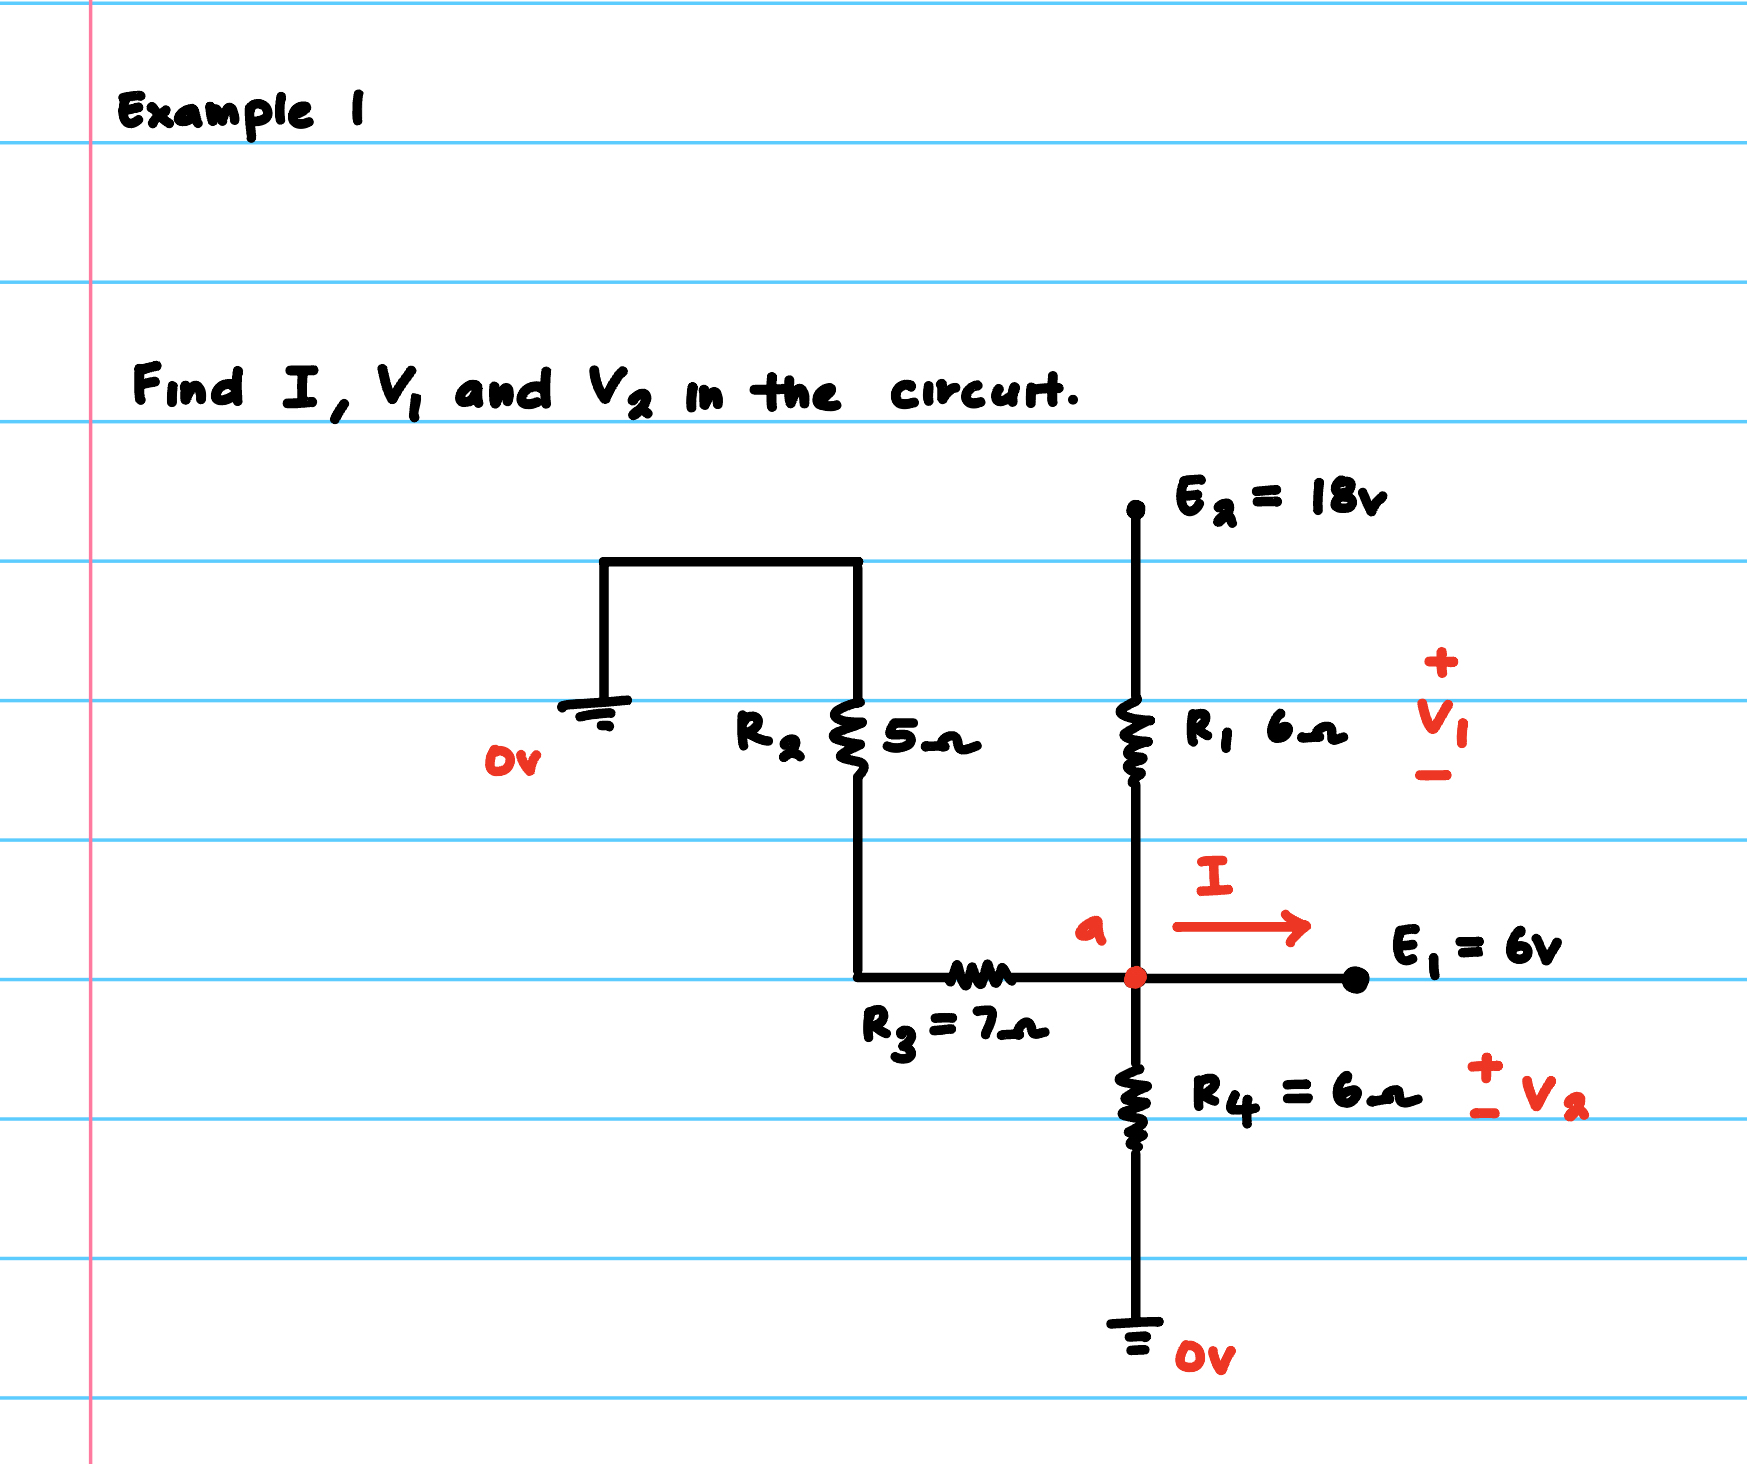 Example 1
Find I, V₁ and V₂ in the circuit.
E₂ = 18v
+
R₂ 5Ω R₁ 6Ω V₁
0v
−
I
a
E₁ = 6v
R₃ = 7Ω
+
R₄ = 6Ω V₂
−
0v